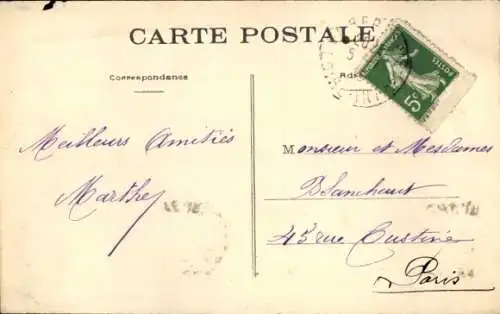 CARTE POSTALE
Correspondance
POSTES
5c
Meilleurs Amitiés
Marthe
Monsieur et Mesdames
Blanchout
43 rue Custine
Paris